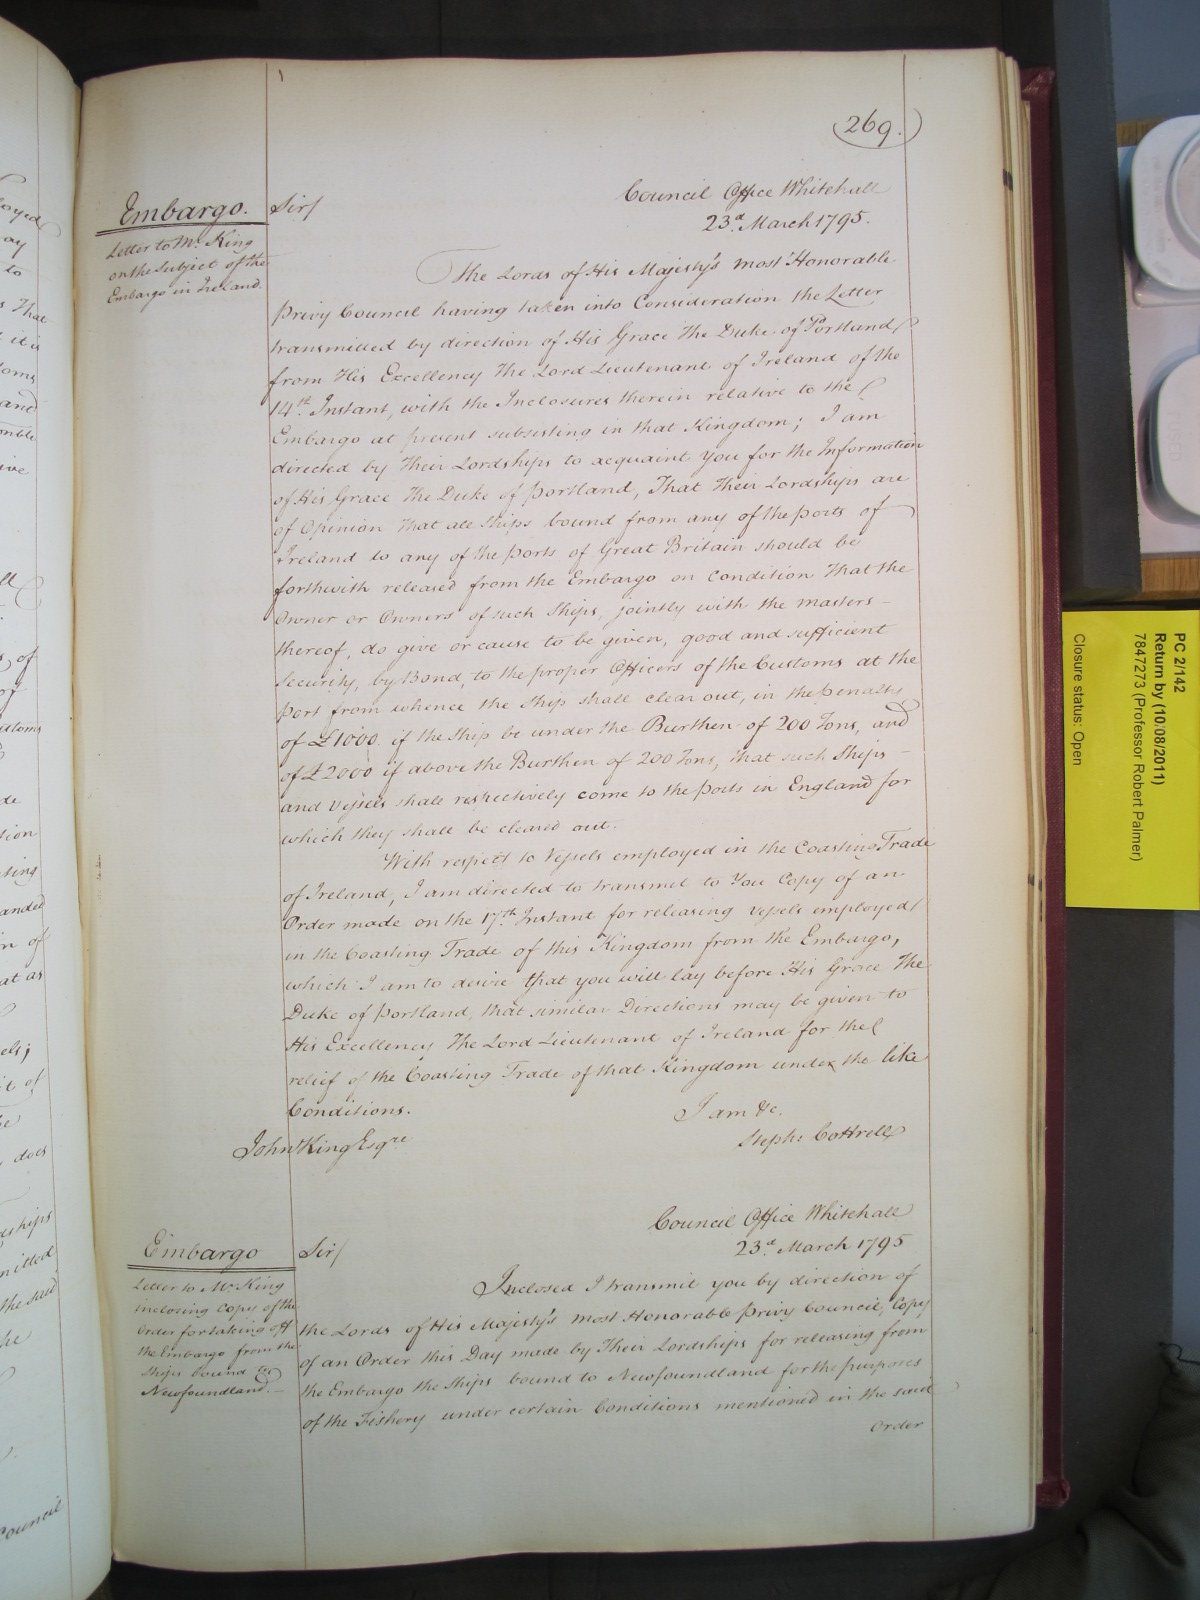 269.
Embargo.
Letter to Mr. King
on the subject of the
Embargo in Ireland.
Sir/
Council Office Whitehall
23d. March 1795.
The Lords of His Majesty's most Honorable
Privy Council having taken into Consideration the Letter
transmitted by direction of His Grace The Duke of Portland
from His Excellency The Lord Lieutenant of Ireland of the
14th. Instant, with the Inclosures therein relative to the
Embargo at present subsisting in that Kingdom; I am
directed by Their Lordships to acquaint you for the Information
of His Grace The Duke of Portland, That Their Lordships are
of Opinion That all Ships bound from any of the ports of
Ireland to any of the Ports of Great Britain should be
forthwith released from the Embargo on Condition That the
Owner or Owners of such Ships, jointly with the masters
thereof, do give or cause to be given, good and sufficient
Security, by Bond, to the proper Officers of the Customs at the
port from whence the Ship shall clear out, in the penalty
of £1000. if the Ship be under the Burthen of 200 Tons, and
of £2000 if above the Burthen of 200 Tons, that such Ships
and Vessels shall respectively come to the ports in England for
which they shall be cleared out.
With respect to Vessels employed in the Coasting Trade
of Ireland, I am directed to transmit to You Copy of an
Order made on the 17th. Instant for releasing Vessels employed
in the Coasting Trade of this Kingdom from the Embargo,
which I am to desire that you will lay before His Grace The
Duke of Portland, that similar Directions may be given to
His Excellency The Lord Lieutenant of Ireland for the
relief of the Coasting Trade of that Kingdom under the like
Conditions.
I am &c.
Steph: Cottrell
John King Esqre
Embargo
Letter to Mr. King
inclosing Copy of the
Order for taking off
the Embargo from the
Ships bound to
Newfoundland.
Sir/
Council Office Whitehall
23d. March 1795
Inclosed I transmit you by direction of
the Lords of His Majesty's most Honorable Privy Council, Copy
of an Order this Day made by Their Lordships for releasing from
the Embargo the Ships bound to Newfoundland for the purposes
of the Fishery under certain Conditions mentioned in the said
Order
PC 2/142
Return by (10/08/2011)
7847273 (Professor Robert Palmer)
Closure status: Open